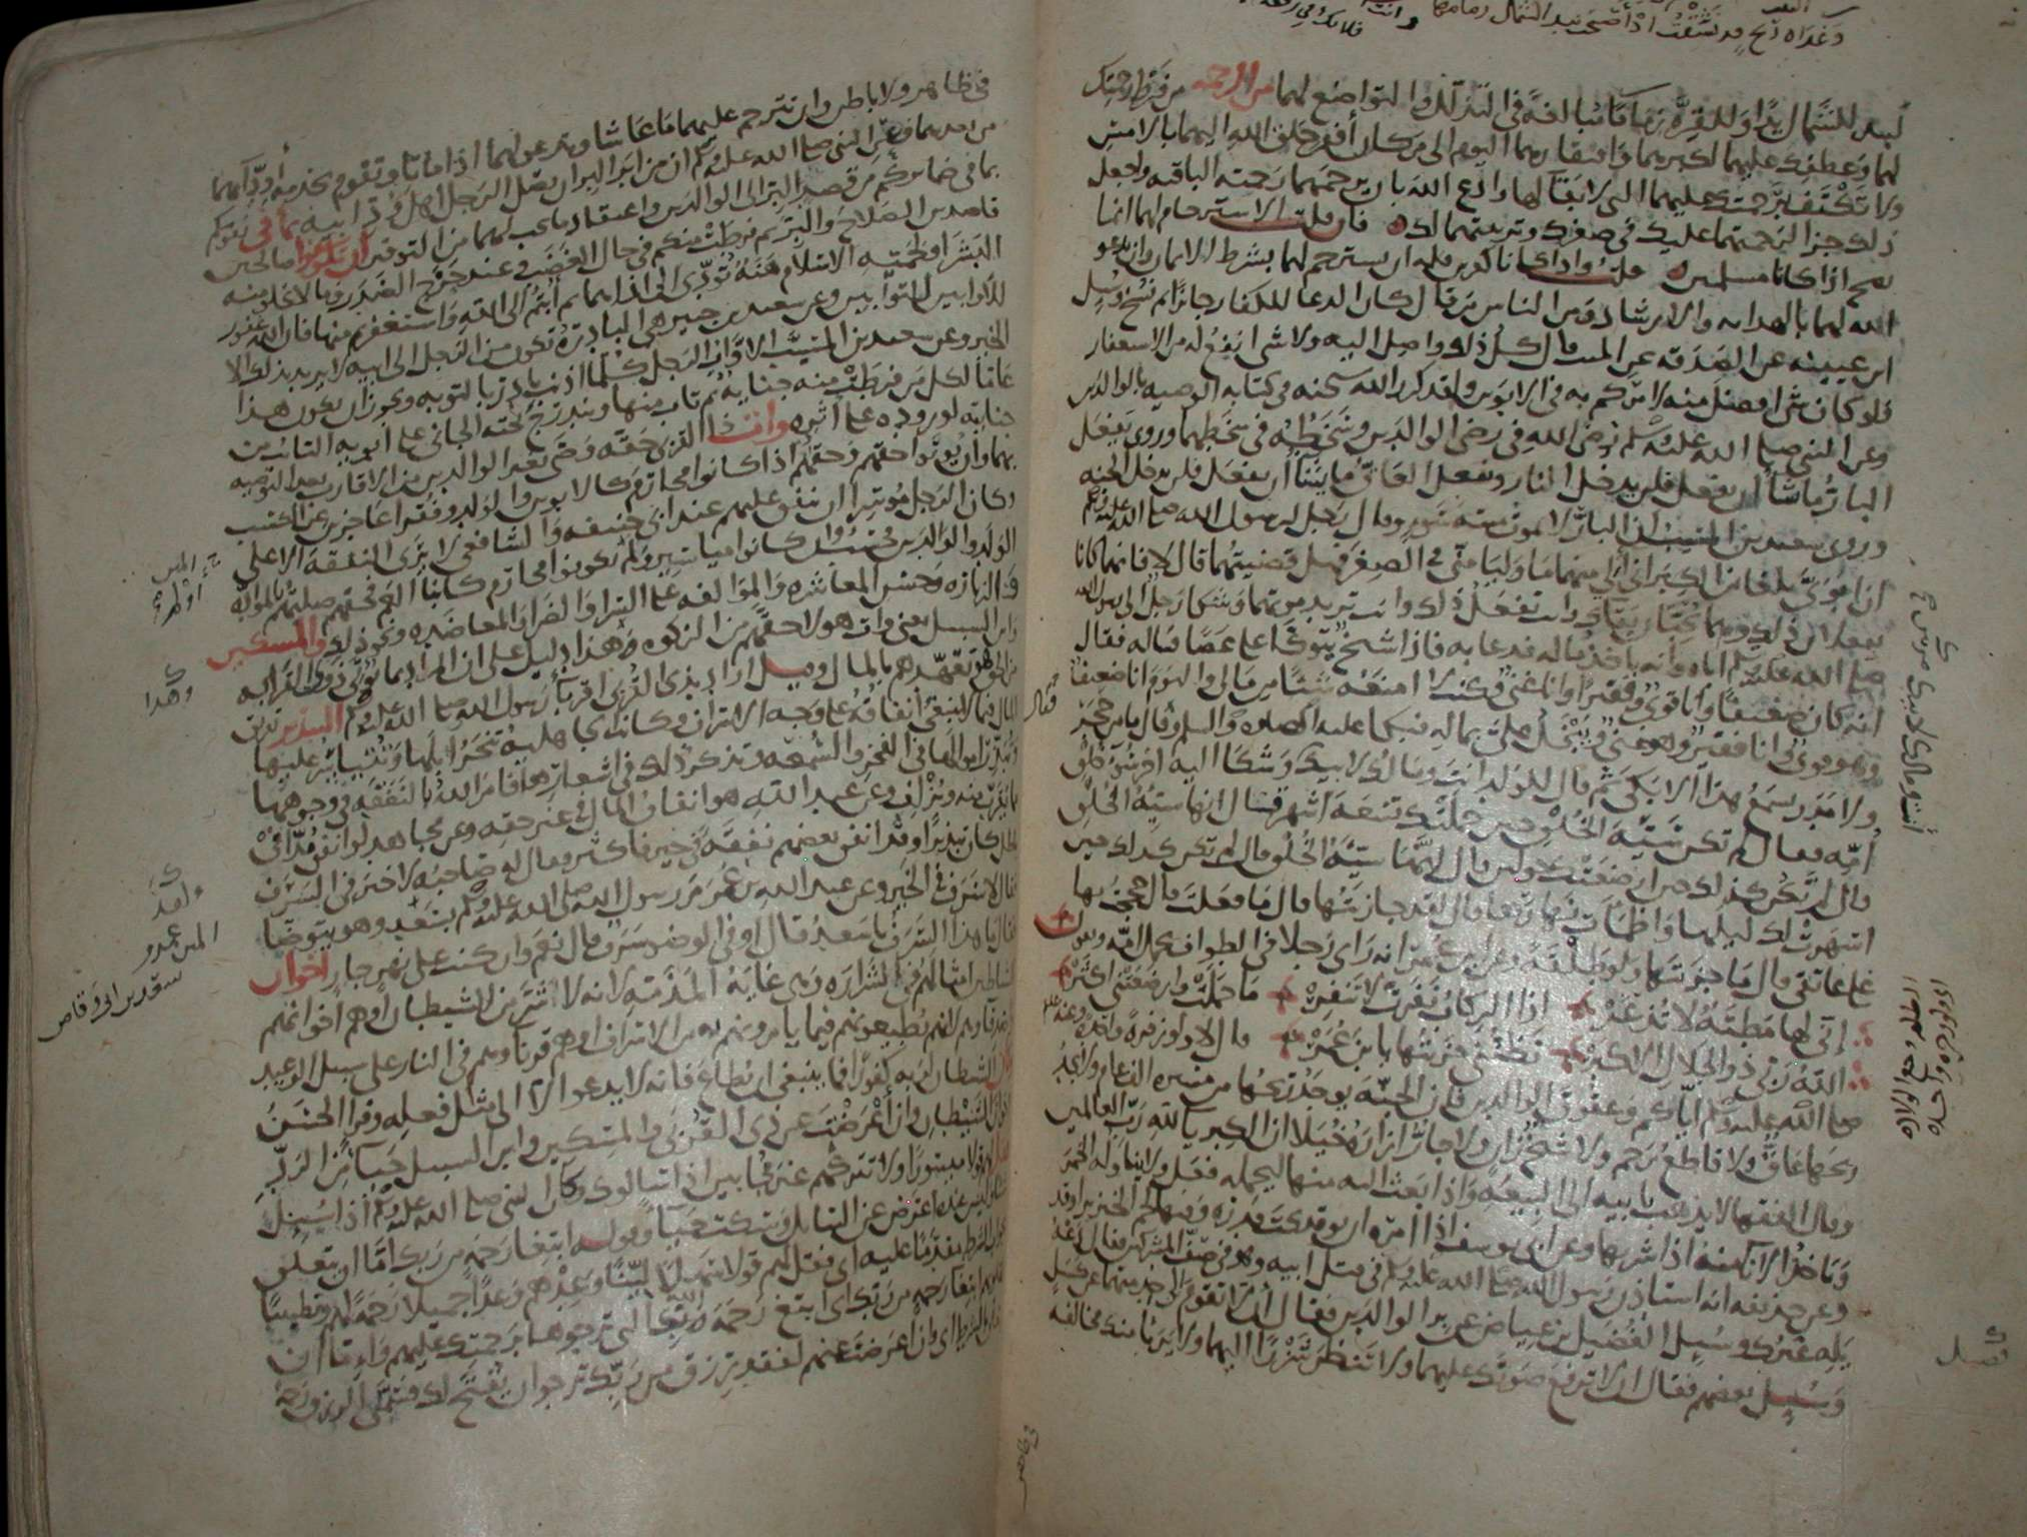 وغداة ريح قد شهدت اذ أصبحت بيد الشمال زمامها
لبيد للشمال يدا وللقرة زماما مبالغة في التذلل والتواضع لهما من الرحمة من فرط رحمتك
لهما وعطفك عليهما لكبرهما وافتقارهما اليوم الى من كان أفقر خلق الله اليهما بالامس
ولا تكتف برحمتك عليهما التى لا بقآ لها وادع الله بان يرحمهما رحمته الباقيه واجعل
ذلك جزا لرحمتهما عليك في صغرك وتربيتهما لك فان قلت الاسترحام لهما انما
يصح اذا كانا مسلمين قلت واذا كانا كافرين فله ان يسترحم لهما بشرط الايمان وان يدعو
الله لهما بالهدايه والارشاد ومن الناس من قال كان الدعا للكفار جائزا ثم نسخ وسئل
ابن عيينه عن الصدقه عن الميت فقال كل ذلك واصل اليه ولا شى انفع له من الاستغفار
فلو كان شى افضل منه لامركم به في الابوين ولقد كرر الله سبحنه في كتابه الوصيه بالوالدين
وعن النبي صلى الله عليه وسلم رضى الله في رضى الوالدين وسخطه في سخطهما وروى يفعل
البار ما شا أن يفعل فلن يدخل النار ويفعل العاق ما يشا أن يفعل فلن يدخل الجنه
وروى سعيد بن المسيب ان البار لا يموت ميتة سوء وقال رجل لرسول الله صلى الله عليه وسلم
ان ابوى بلغا من الكبر انى ألى منهما ما وليا منى في الصغر فهل قضيتهما قال لا فانهما كانا
يفعلان ذلك وهما يحبان بقاك وانت تفعل ذلك وانت تريد موتهما وشكا رجل الى رسول الله
صلى الله عليه وسلم اباه وانه ياخذ ماله فدعا به فاذا شيخ يتوكا على عصا فساله فقال
انه كان ضعيفا وانا قوى وفقيرا وانا غنى وكنت لا امنعه شيئا من مالى واليوم انا ضعيف
وهو قوى وانا فقير وهو غنى ويبخل على بماله فبكى عليه الصلوه والسلم وقال ما من حجر
ولا مدر يسمع هذا الا بكى ثم قال للولد انت ومالك لابيك وشكا اليه اخر سو خلق
أمه فقال لم تكن سيئة الخلق حين حملتك تسعة اشهر قال انها سيئة الخلق
قال لم تكن كذلك حين ارضعتك حولين قال انها سيئة الخلق قال لم تكن كذلك حين
اسهرت لك ليلها واظمات نهارها قال لقد جازيتها قال ما فعلت قال حججت بها
على عاتقى قال ما جزيتها ولو طلقة وعن ابن عمر انه راى رجلا في الطواف يحمل امه ويقول
إنى لها مطية لا تذعر اذا الركاب نفرت لا تنفر ما حملت وارضعتنى اكثر
الله ربى ذو الجلال الاكبر تظننى جزيتها يابن عمر قال لا ولو زفرة واحدة وعنه
صلى الله عليه وسلم اياكم وعقوق الوالدين فان الجنة يوجد ريحها من مسيرة الف عام ولا يجد
ريحها عاق ولا قاطع رحم ولا شيخ زان ولا جار ازاره خيلا ان الكبريا لله رب العالمين
وقال الفقها لا يذهب بابيه الى البيعه واذا بعث اليه منها ليحمله فعل ولا يناوله الخمر
وياخذ الانا منه اذا شربها وعن ابى يوسف اذا امره ان يوقد تحت قدره وفيها لحم الخنزير اوقد
وعن حذيفه انه استاذن رسول الله صلى الله عليه وسلم في قتل ابيه وهو في صف المشركين فقال دعه
يله غيرك وسئل الفضيل بن عياض عن بر الوالدين فقال أن لا تقوم الى خدمتهما عن كسل
وسئل بعضهم فقال ان لا ترفع صوتك عليهما ولا تنظر شزرا اليهما ولا يريا منك مخالفه
في ظاهر ولا باطن وان تترحم عليهما ما عاشا وتدعو لهما اذا ماتا وتقوم بخدمة أودآئهما
من بعدهما فعن النبي صلى الله عليه وسلم ان من ابر البر ان يصل الرجل اهل ود ابيه بما في نفوسكم
بما في ضمائركم من قصد البر الى الوالدين واعتقاد ما يجب لهما من التوقير ان تكونوا صالحين
قاصدين الصلاح والبر ثم فرطت منكم في حال الغضب وعند حرج الصدر وما لا يخلو منه
البشر او لحمية الاسلام هنة تؤدى الى اذاهما ثم أبتم الى الله واستغفرتم منها فان الله غفور
للأوابين للتوابين وعن سعيد بن جبير هى البادرة تكون من الرجل الى ابيه لا يريد بذلك الا
الخير وعن سعيد بن المسيب الاواب الرجل كلما اذنب بادر بالتوبه ويجوز ان يكون هذا
عاما لكل من فرطت منه جناية ثم تاب منها ويندرج تحته الجانى على ابويه التائب من
جنايته لوروده على اثره وات ذا القربى حقه وصى بغير الوالدين من الاقارب بعد التوصيه
بهما وأن يؤتوا حقهم وحقهم اذا كانوا محارم كالابوين والولد وفقرا عاجزين عن الكسب
وكان الرجل موسرا ان ينفق عليهم عند ابى حنيفه والشافعى لا يرى النفقة الا على
الولد والوالدين فحسب وان كانوا مياسير ولم يكونوا محارم كابنآ العم فحقهم صلتهم بالموده
والزياره وحسن المعاشره والموالفه على السرا والضرا والمعاضده ونحو ذلك والمسكين
وابن السبيل يعنى وات هولا حقهم من الزكوه وهذا دليل على ان المراد بما يؤتى ذوى القرابه
من الحق هو تعهدهم بالمال وقيل اراد بذى القربى اقربآ رسول الله صلى الله عليه وسلم التبذير تفريق
المال فيما لا ينبغى وانفاقه على وجه الاسراف وكانت الجاهلية تنحر ابلها وتتياسر عليها
وتبذر اموالها في الفخر والسمعه وتذكر ذلك في اشعارها فامر الله بالنفقه في وجوهها
مما يقرب منه ويزلف وعن عبد الله هو انفاق المال في غير حقه وعن مجاهد لو انفق مدا في
باطل كان تبذيرا وقد انفق بعضهم نفقة في خير فاكثر فقال له صاحبه لا خير في السرف
فقال لا سرف في الخير وعن عبد الله بن عمر مر رسول الله صلى الله عليه وسلم بسعد وهو يتوضا
فقال ما هذا السرف يا سعد قال أو في الوضو سرف قال نعم وان كنت على نهر جار اخوان
الشياطين امثالهم في الشرارة وهى غاية المذمة لانه لا اشر من الشيطان أو هم اخوانهم
واصدقاوهم لانهم يطيعونهم فيما يامرونهم به من الاسراف او هم قرناوهم في النار على سبيل الوعيد
وكان الشيطان لربه كفورا فما ينبغى ان يطاع فانه لا يدعو الا الى مثل فعله وقرا الحسن
اخوان الشيطان وان أعرضت عن ذى القربى والمسكين وابن السبيل حيآ من الرد
فقل لهم قولا ميسورا ولا تتركهم غير مجابين اذا سالوك وكان النبي صلى الله عليه وسلم اذا سئل
شيا وليس عنده اعرض عن السايل وسكت حيآ وقوله ابتغا رحمة من ربك اما ان يتعلق
بجواب الشرط مقدما عليه اى فقل لهم قولا سهلا لينا وعدهم وعدا جميلا رحمة لهم وتطييبا
لقلوبهم ابتغا رحمة من ربك اى ابتغ رحمة الله التى ترجوها برحمتك عليهم واما أن
يتعلق بالشرط اى وان اعرضت عنهم لفقد رزق من ربك ترجو ان يفتح لك فسمى الرزق رحمة
وهذا
سعد بن ابى وقاص
فقال